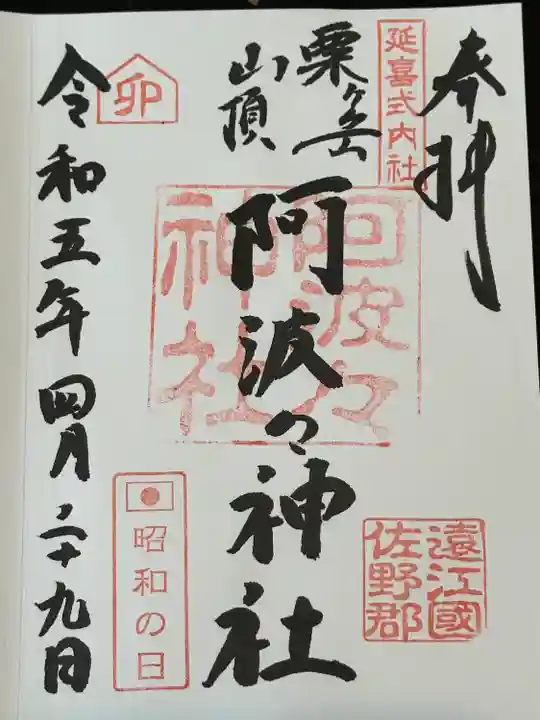 奉拝
延喜式内社
栗ヶ岳
山頂
阿波々神社
阿波々
神社
遠江國
佐野郡
卯
昭和の日
令和五年四月二十九日